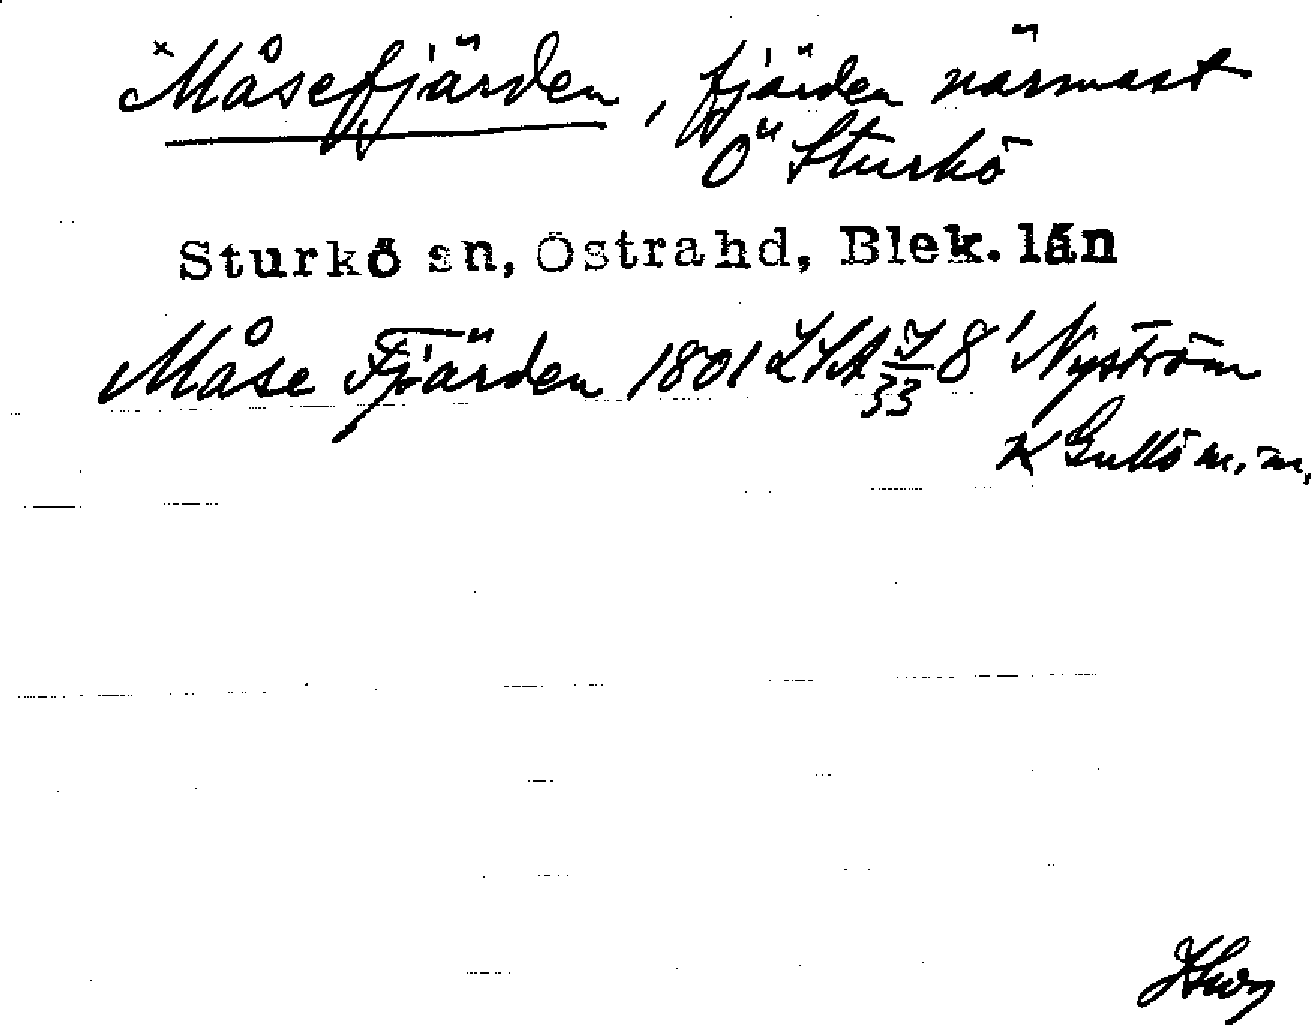 ×Måsefjärden, fjärden närmast
Ö Sturkö
Sturkö sn, Östrahd, Blek. län
Måse Fjärden 1801 LSA 7/33 8' Nyström
K Gullö m. m.